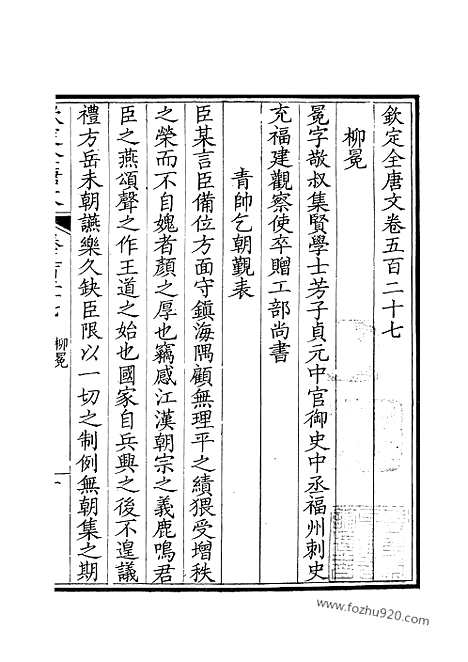 欽定全唐文卷五百二十七
柳冕
冕字敬叔集賢學士芳子貞元中官御史中丞福州刺史
充福建觀察使卒贈工部尚書
青帥乞朝覲表
臣某言臣備位方面守鎮海隅顧無理平之績猥受增秩
之榮而不自媿者顏之厚也竊感江漢朝宗之義鹿鳴君
臣之燕頌聲之作王道之始也國家自兵興之後不遑議
禮方岳未朝讌樂久缺臣限以一切之制例無朝集之期
柳冕
一
www.fozhu920.com